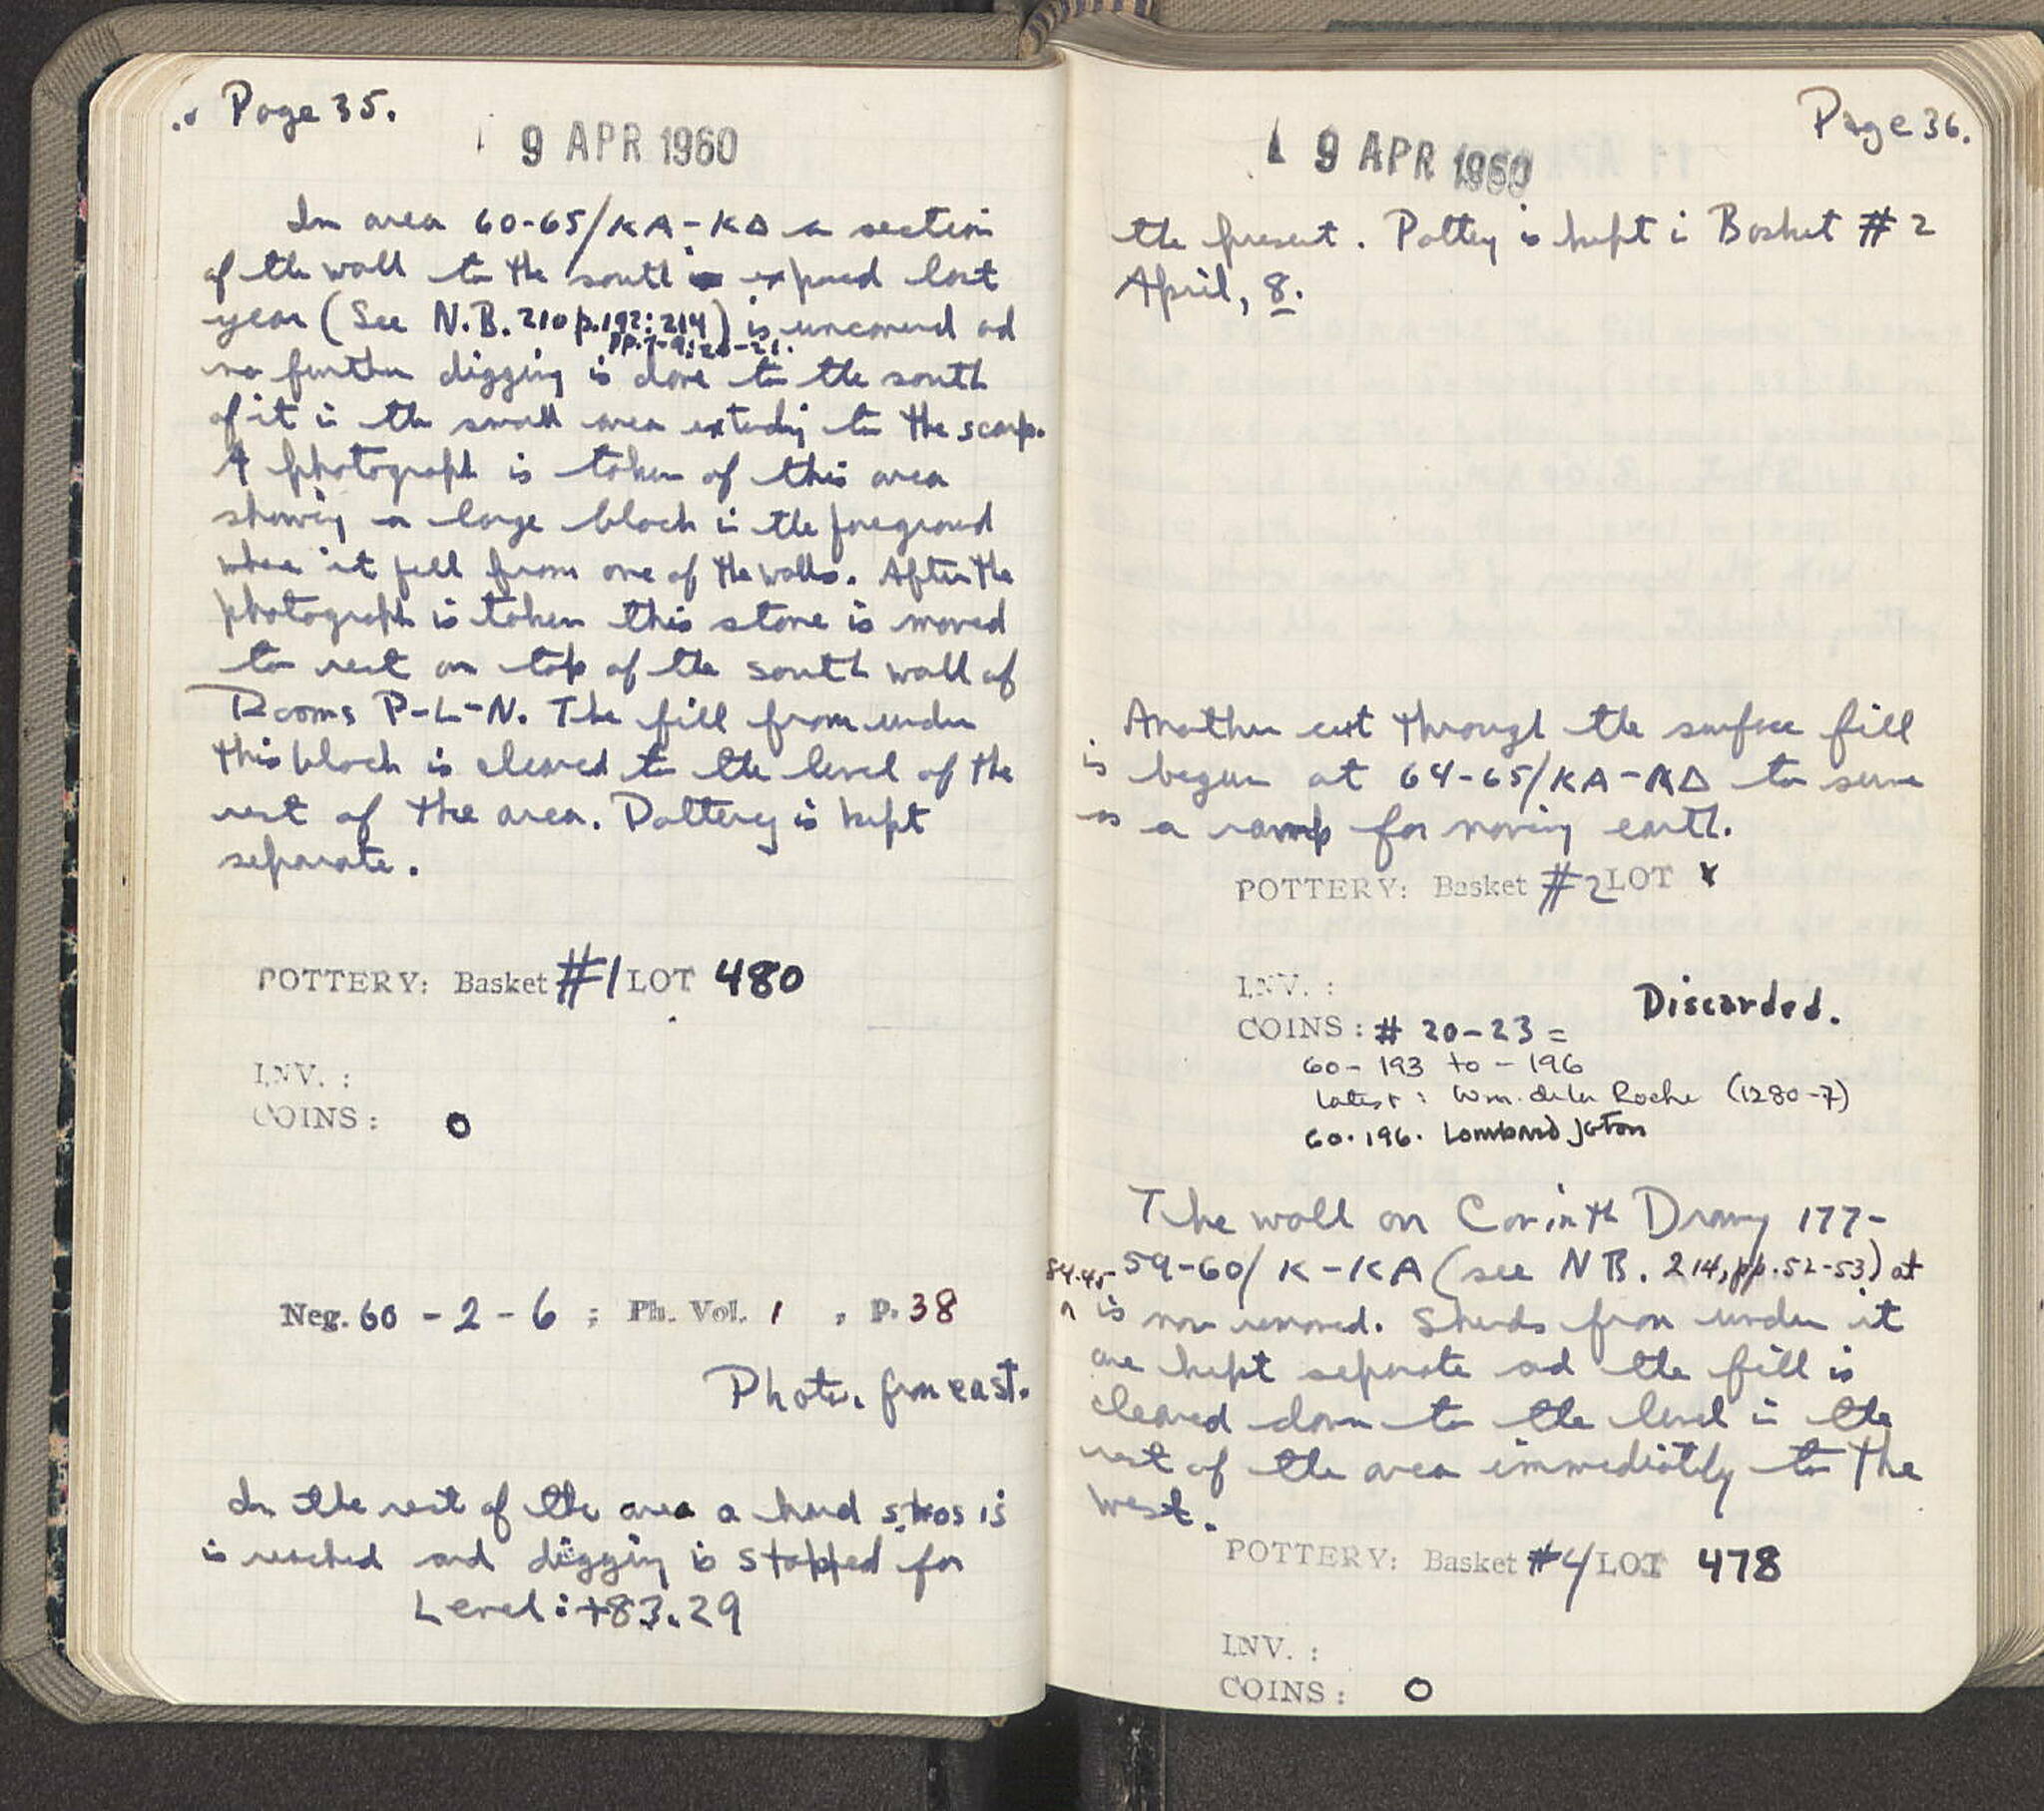 Page 35.
9 APR 1960
In area 60-65/KA-KΔ a section
of the wall to the south exposed last
year (See N.B. 210 p.192; 214) is uncovered ad
pp. 7-9; 20-21.
no further digging is done to the south
of it i the small area extending to the scarp.
A photograph is taken of this area
showing a large block i the foreground
where it fell from one of the walls. After the
photograph is taken this stone is moved
to rest on top of the south wall of
Rooms P-L-N. The fill from under
this block is cleared to the level of the
rest of the area. Pottery is kept
separate.
POTTERY: Basket #1 LOT 480
INV. :
COINS: 0
Neg. 60 - 2 - 6 ; Ph. Vol. 1 , p. 38
Photo. from east.
In the rest of the area a hard stros is
is reached and digging is stopped for
Level: +83.29
Page 36.
9 APR 1960
the present. Pottery is kept i Basket # 2
April, 8.
Another cut through the surface fill
is begun at 64-65/KA-KΔ to serve
as a ramp for moving earth.
POTTERY: Basket #2 LOT x
INV. :
Discarded.
COINS: # 20-23 =
60- 193 to - 196
Latest: Wm. de la Roche (1280-7)
60.196. Lombard Jeton
The wall on Corinth Drawg 177-
59-60/ K-KA (see NB. 214, pp. 52-53) at
84.45
is now removed. Sherds from under it
are kept separate ad the fill is
cleared down to the level i the
rest of the area immediately to the
west.
POTTERY: Basket #4 LOT 478
INV. :
COINS: 0